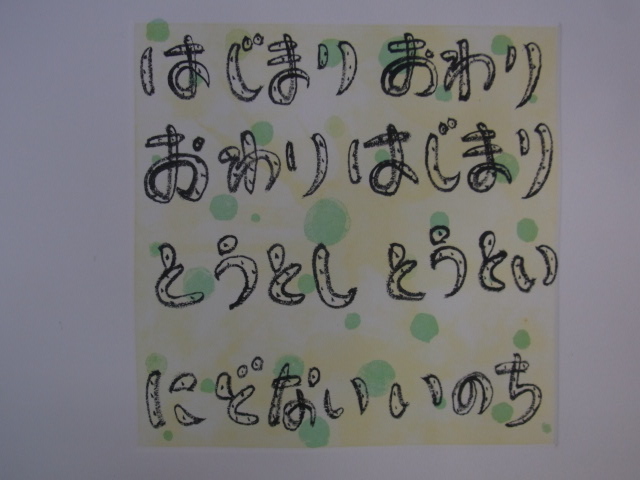 はじまり おわり
おわり はじまり
とうとし とうとい
にどない いのち